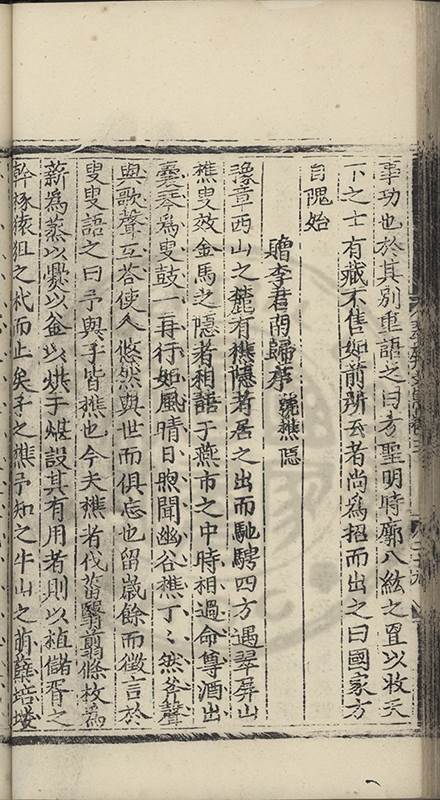 事功也於其別重語之曰方聖明時廓八紘之罝以收天
下之士有藏不售如前所云者尚爲招而出之曰國家方
自隗始
贈李君南歸序 號樵隱
豫章西山之麓有樵隱者居之出而馳騁四方遇翠屏山
樵叟效金馬之隱者相語于燕市之中時相過命尊酒出
囊琴爲叟鼓一再行如風晴日煦聞幽谷樵丁丁然斧聲
與歌聲互荅使人悠然與世而俱忘也留歲餘而徵言於
叟叟語之曰予與子皆樵也今夫樵者伐菑翳翦條枚爲
薪爲蒸以爨以釜以烘于煁設其有用者則以植儲胥之
幹椓猿狙之杙而止矣子之樵予知之牛山之萌蘖培塿